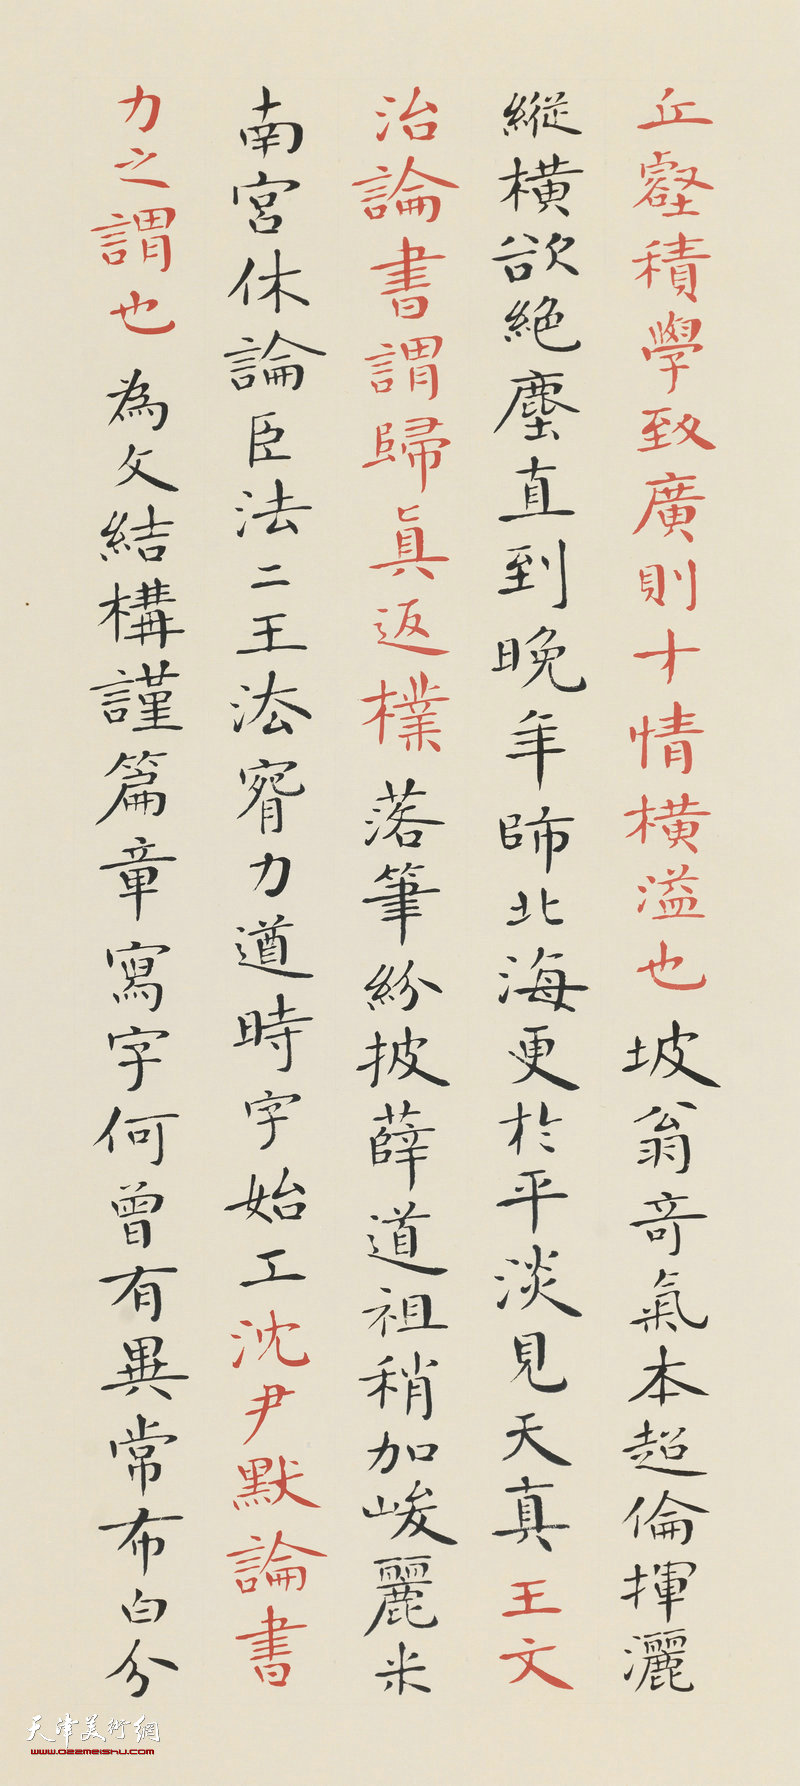 丘壑積學致廣則才情橫溢也坡翁奇氣本超倫揮灑
縱橫欲絕塵直到晚年師北海更於平淡見天真王文
治論書謂歸真返樸落筆紛披薛道祖稍加峻麗米
南宮休論臣法二王法窅力遒時字始工沈尹默論書
力之謂也為文結構謹篇章寫字何曾有異常布白分
天津美術網
www.022meishu.com